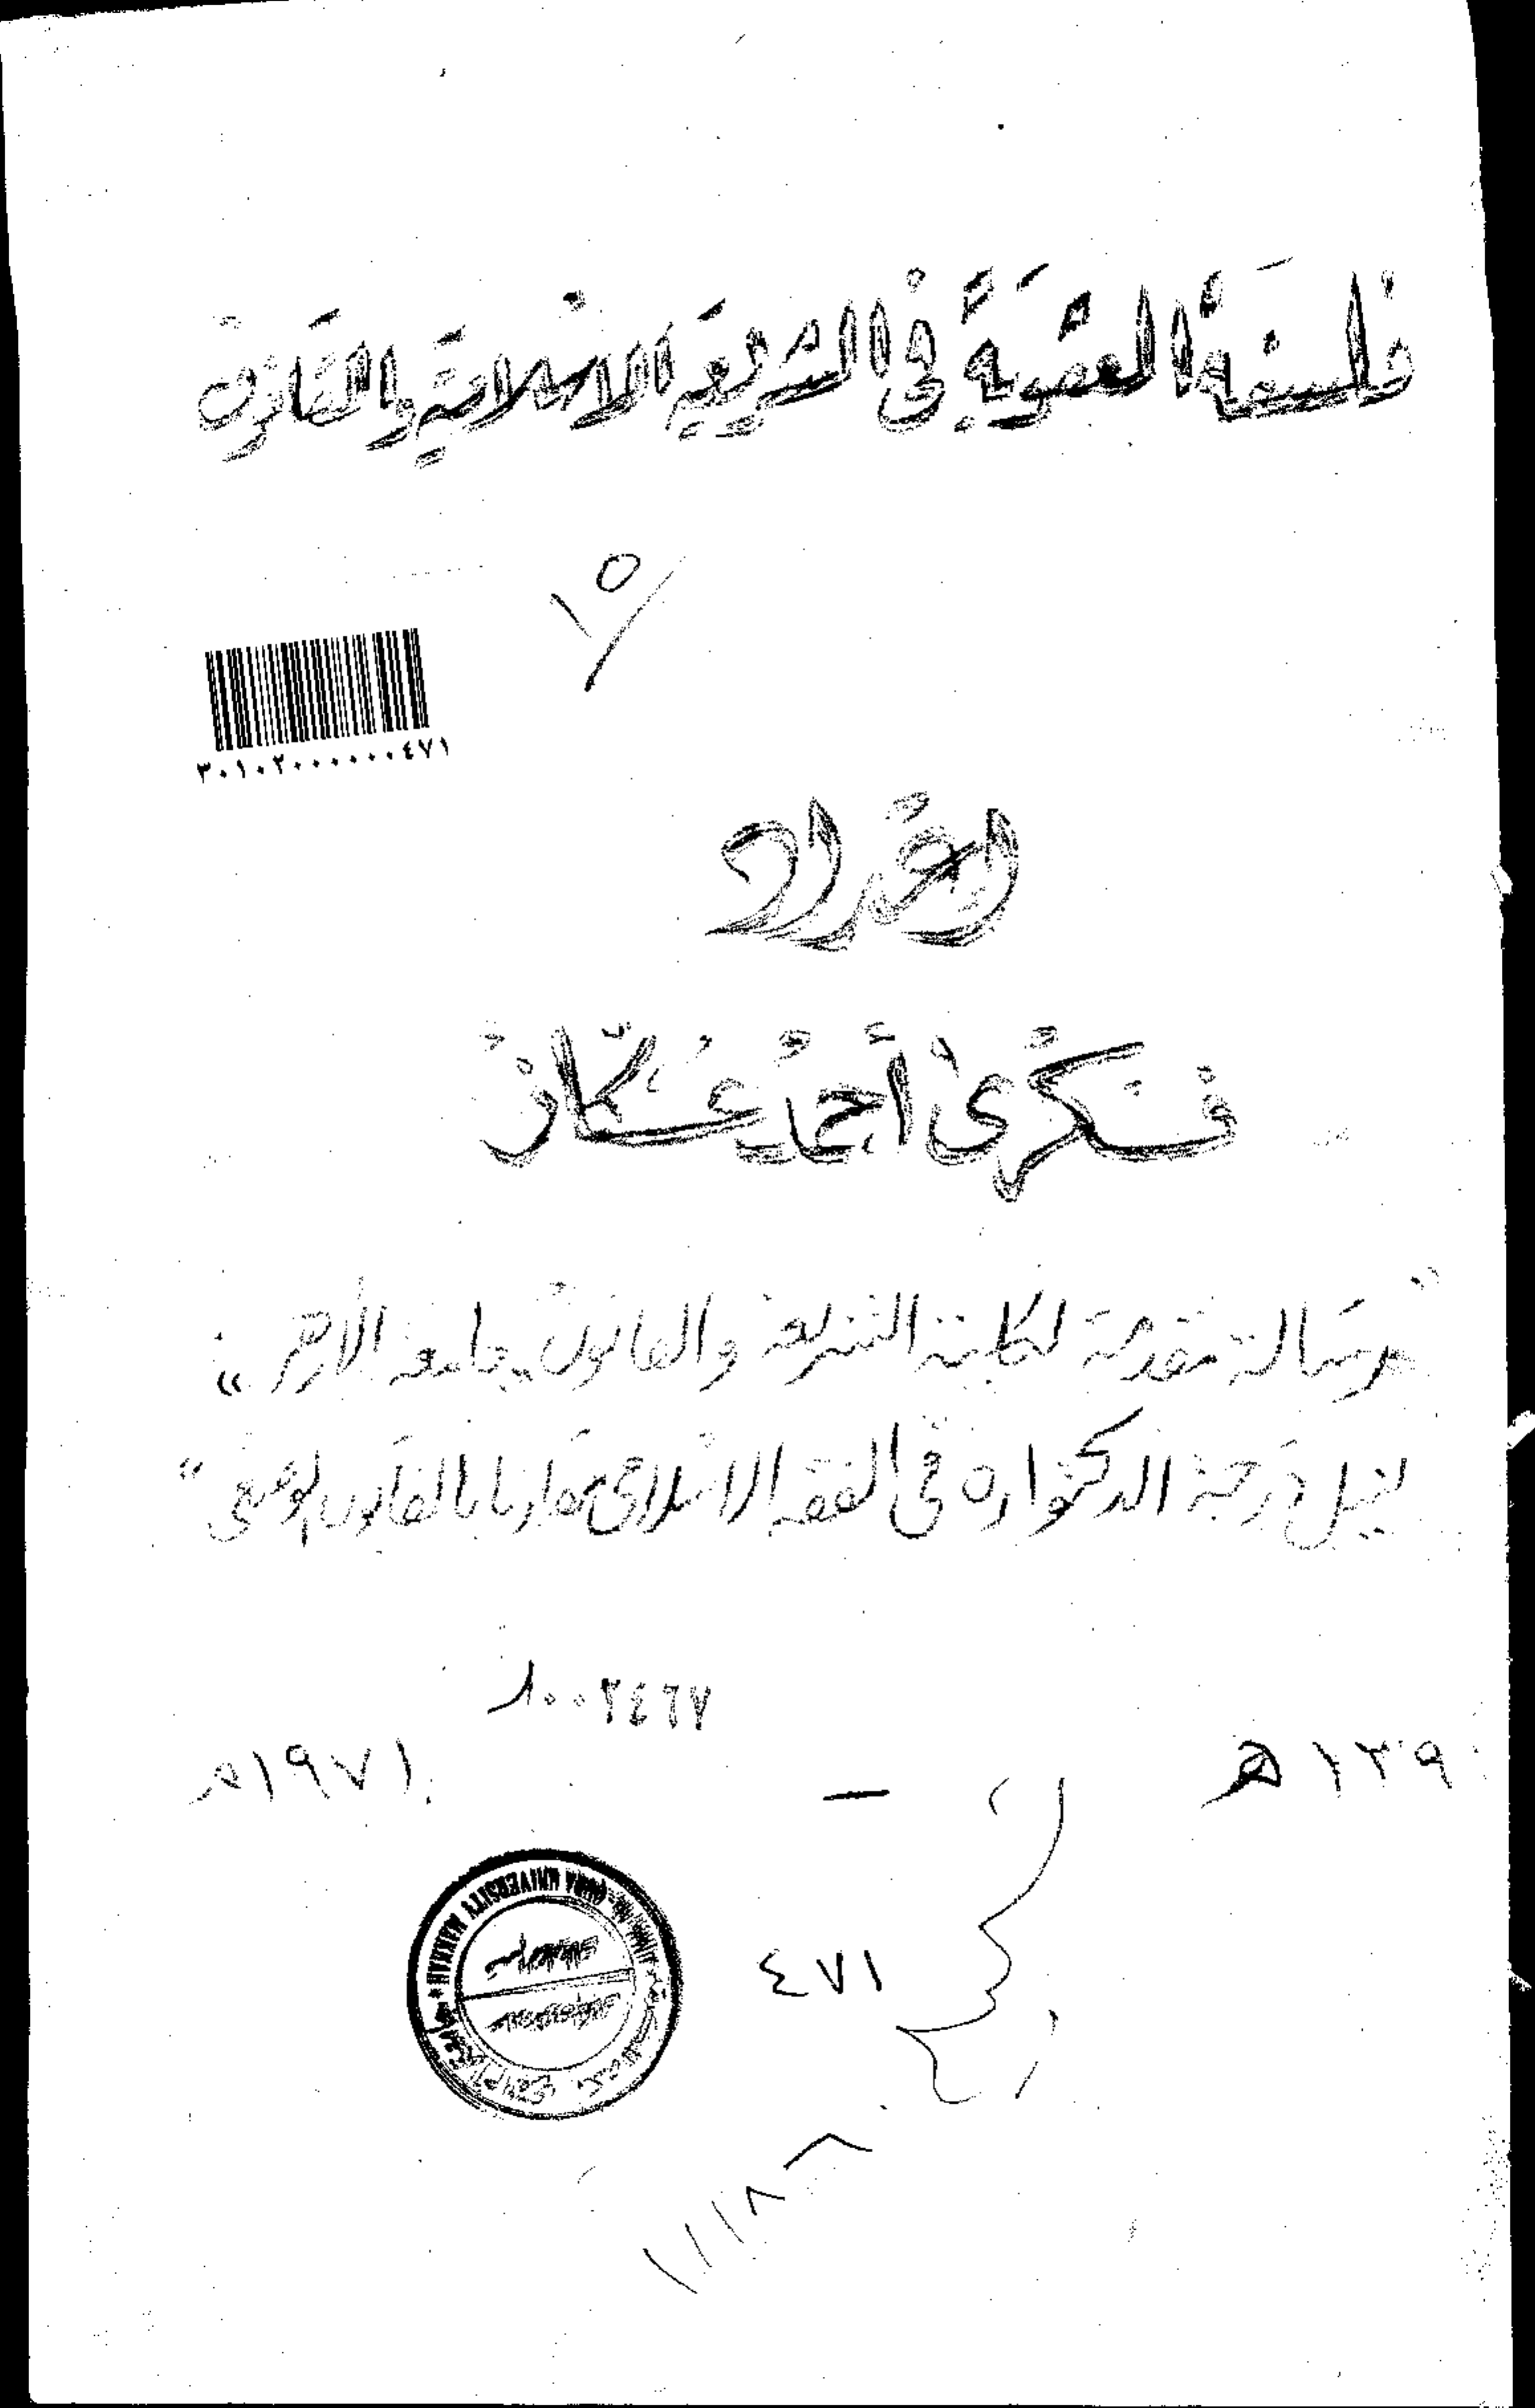 فلسفة العقوبة في الشريعة الاسلامية والقانون
١٥
٣٠١٠٢٠٠٠٠٠٠٤٧١
إعداد
فكرى أحمد عكاز
"رسالة مقدمة لكلية الشريعة والقانون بجامعة الأزهر"
لنيل درجة الدكتوراه في الفقه الاسلامى مقارنا بالقانون الوضعى"
٠٠٢٤٦٧
١٣٩ هـ — ١٩٧١م
UNIVERSITY MAKKAH
٤٧١